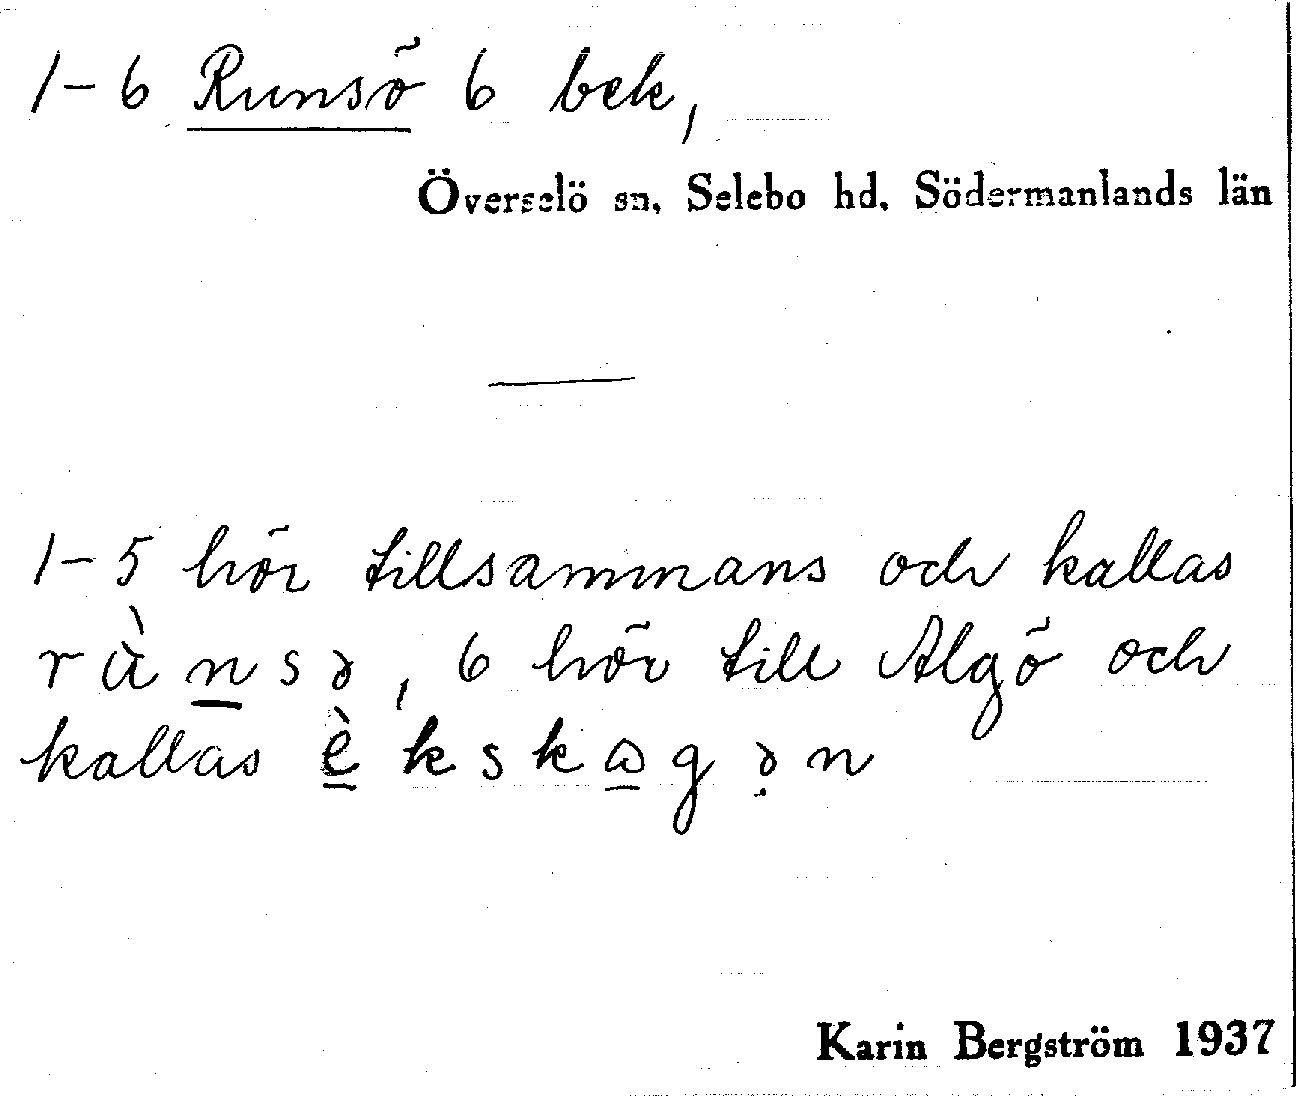 1-6 Runsö 6 bek,
Överselö sn, Selebo hd. Södermanlands län
1-5 hör tillsammans och kallas
rùnsə, 6 hör till Algö och
kallas èkskɷgən
Karin Bergström 1937